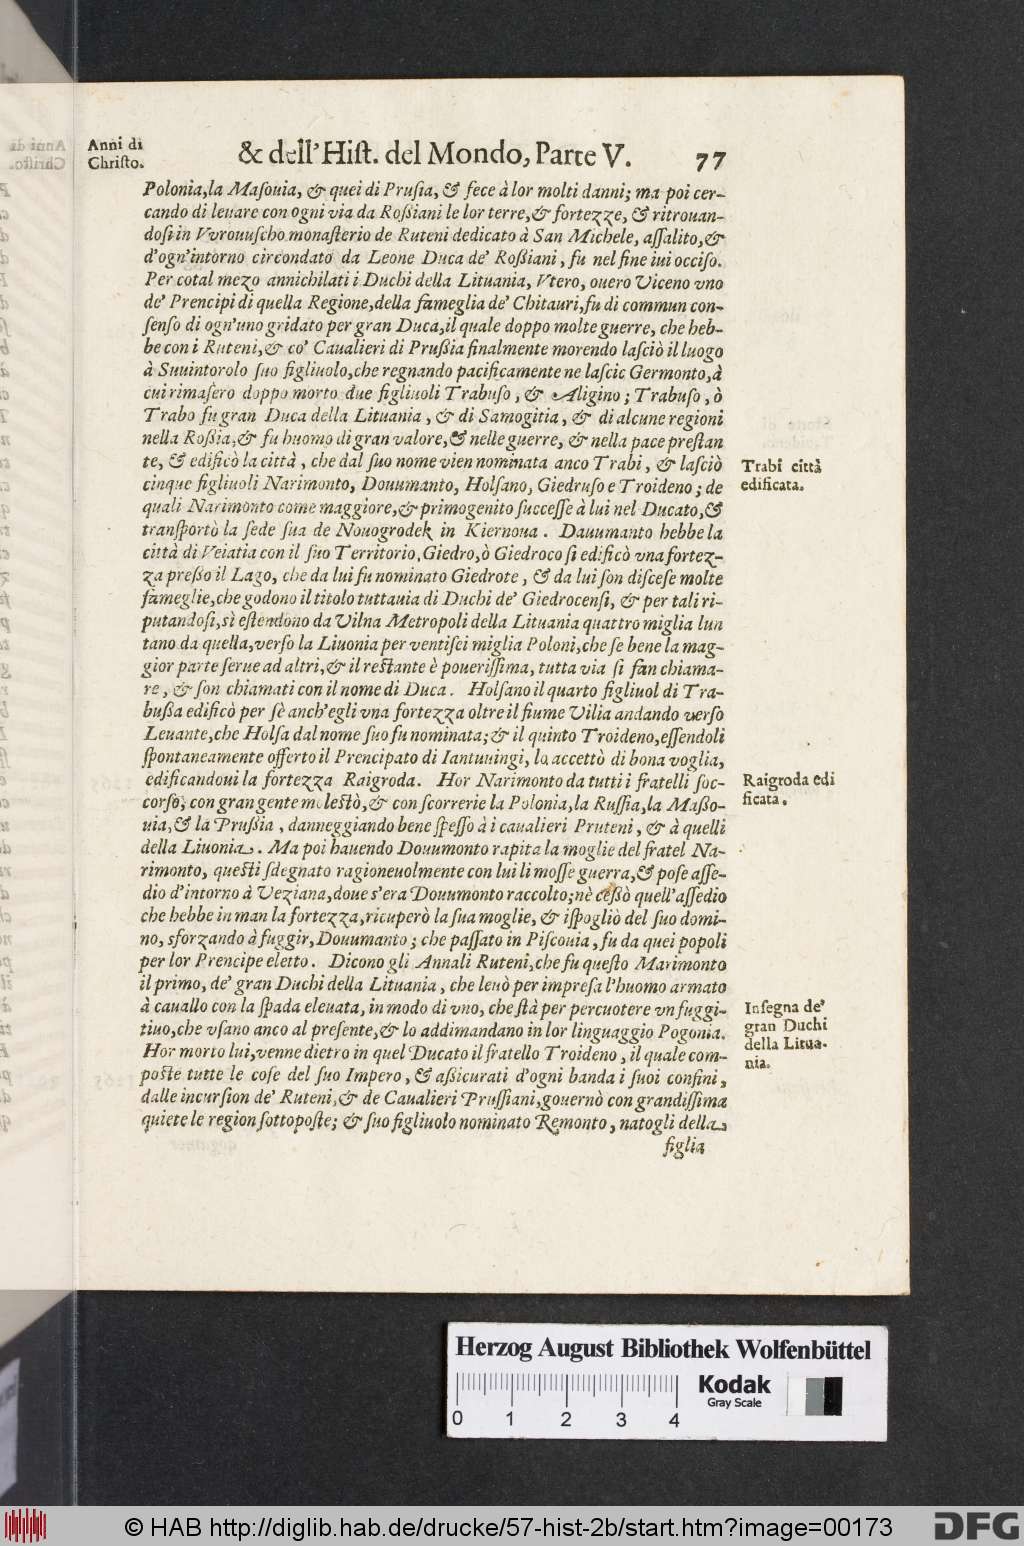 Anni di
Chriſto.
& dell'Hiſt. del Mondo, Parte V. 77
Polonia,la Maſouia, & quei di Pruſia, & fece à lor molti danni; ma poi cer-
cando di leuare con ogni via da Roßiani le lor terre,& fortezze, & ritrouan-
doſi in Vvrouuſcho monaſterio de Ruteni dedicato à San Michele, aſſalito,&
d'ogn'intorno circondato da Leone Duca de' Roßiani, fu nel fine iui occiſo.
Per cotal mezo annichilati i Duchi della Lituania, Vtero, ouero Viceno vno
de' Prencipi di quella Regione,della fameglia de' Chitauri,fu di commun con-
ſenſo di ogn'uno gridato per gran Duca,il quale doppo molte guerre, che heb-
be con i Ruteni,& co' Caualieri di Prußia finalmente morendo laſciò il luogo
à Suuintorolo ſuo figliuolo,che regnando pacificamente ne laſciò Germonto,à
cui rimaſero doppo morto due figliuoli Trabuſo, & Aligino; Trabuſo, ò
Trabo fu gran Duca della Lituania, & di Samogitia, & di alcune regioni
nella Roßia,& fu huomo di gran valore,& nelle guerre, & nella pace preſtan
te, & edificò la città, che dal ſuo nome vien nominata anco Trabi, & laſciò
cinque figliuoli Narimonto, Douumanto, Holſano, Giedruſo e Troideno; de
quali Narimonto come maggiore,& primogenito ſucceſſe à lui nel Ducato,&
tranſportò la ſede ſua de Nouogrodek in Kiernoua. Dauumanto hebbe la
città di Veiatia con il ſuo Territorio,Giedro,ò Giedroco ſi edificò vna fortez-
za preßo il Lago, che da lui fu nominato Giedrote, & da lui ſon diſceſe molte
fameglie,che godono il titolo tuttauia di Duchi de' Giedrocenſi, & per tali ri-
putandoſi,sì eſtendono da Vilna Metropoli della Lituania quattro miglia lun
tano da quella,verſo la Liuonia per ventiſei miglia Poloni,che ſe bene la mag-
gior parte ſerue ad altri,& il reſtante è pouerißima, tutta via ſi fan chiama-
re, & ſon chiamati con il nome di Duca. Holſano il quarto figliuol di Tra-
bußa edificò per sè anch'egli vna fortezza oltre il fiume Vilia andando verſo
Leuante,che Holſa dal nome ſuo fu nominata;& il quinto Troideno,eſſendoli
ſpontaneamente offerto il Prencipato di Iantuuingi, lo accettò di bona voglia,
edificandoui la fortezza Raigroda. Hor Narimonto da tutti i fratelli ſoc-
corſo, con gran gente moleſtò,& con ſcorrerie la Polonia,la Ruſſia,la Maßo-
uia,& la Prußia, danneggiando bene ſpeſſo à i caualieri Pruteni, & à quelli
della Liuonia. Ma poi hauendo Douumonto rapita la moglie del fratel Na-
rimonto, queſti ſdegnato ragioneuolmente con lui li moſſe guerra,& poſe aſſe-
dio d'intorno à Veziana,doue s'era Douumonto raccolto;nè ceßò quell'aſſedio
che hebbe in man la fortezza,ricuperò la ſua moglie, & iſpogliò del ſuo domi-
no, sforzando à fuggir,Douumanto; che paſſato in Piſcouia, fu da quei popoli
per lor Prencipe eletto. Dicono gli Annali Ruteni,che fu queſto Marimonto
il primo, de' gran Duchi della Lituania, che leuò per impreſa l'huomo armato
à cauallo con la ſpada eleuata, in modo di vno, che ſtà per percuotere vn fuggi-
tiuo,che vſano anco al preſente,& lo addimandano in lor linguaggio Pogonia.
Hor morto lui,venne dietro in quel Ducato il fratello Troideno, il quale com-
poſte tutte le coſe del ſuo Impero, & aßicurati d'ogni banda i ſuoi confini,
dalle incurſion de' Ruteni,& de Caualieri Pruſſiani,gouernò con grandiſſima
quiete le region ſottopoſte; & ſuo figliuolo nominato Remonto, natogli della
figlia
Trabi città
edificata.
Raigroda edi
ficata.
Inſegna de'
gran Duchi
della Litua-
nia.
Herzog August Bibliothek Wolfenbüttel
0 1 2 3 4
Kodak
Gray Scale
© HAB http://diglib.hab.de/drucke/57-hist-2b/start.htm?image=00173
DFG